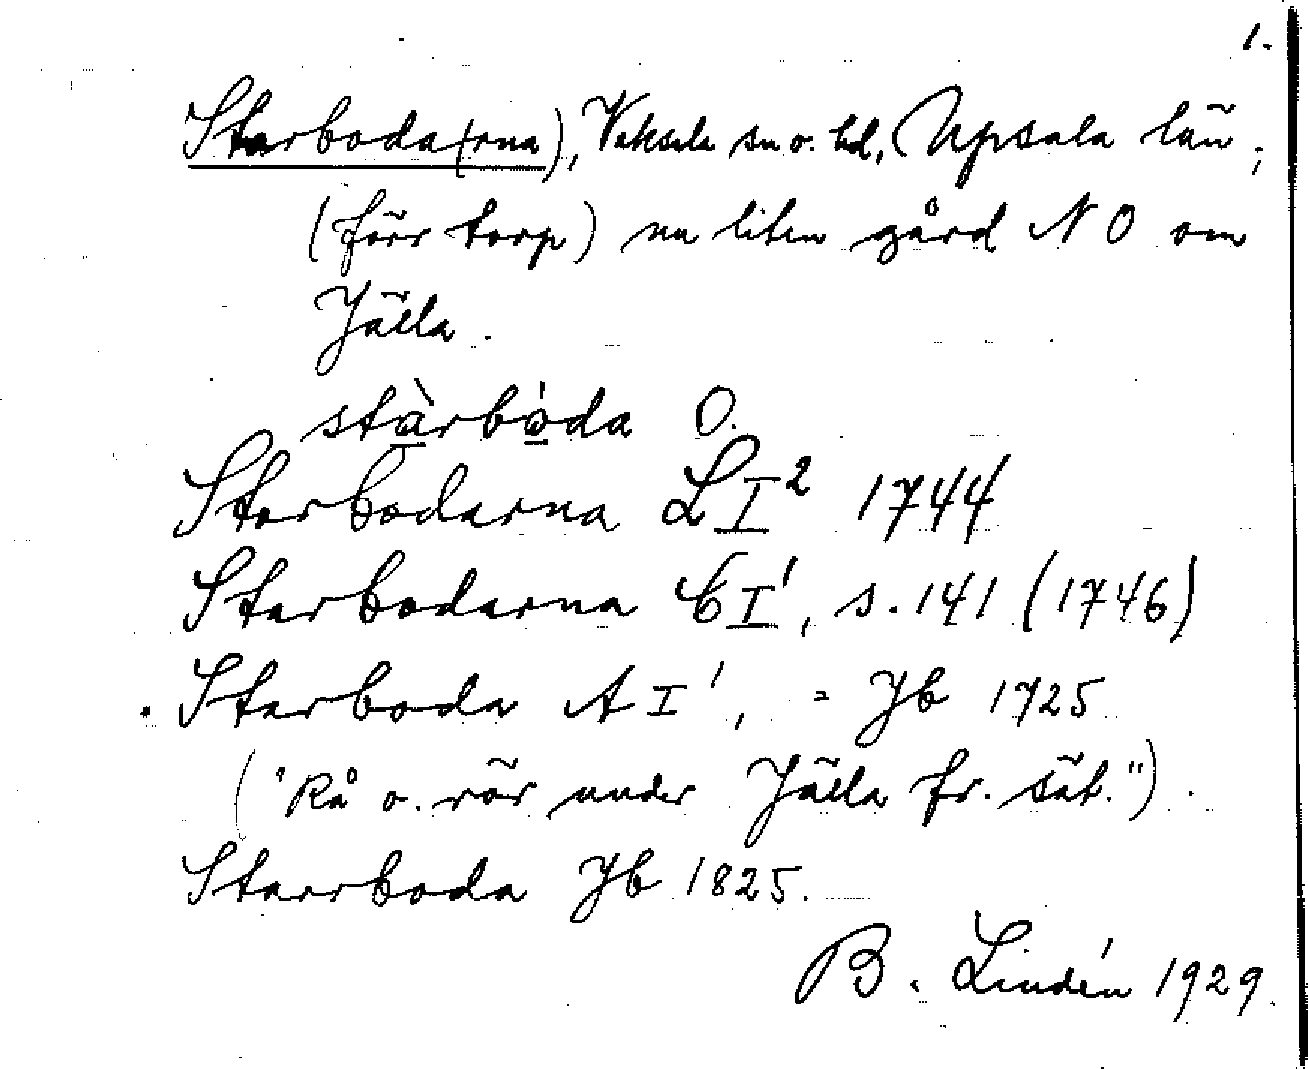 1.
Starboda(rna), Vaksala sn o. hd, Upsala län;
(förr torp) nu liten gård NO om
Jälla.
stàrbóda O.
Starbodarna LI² 1744
Starbodarna CI¹, s. 141 (1746)
Starboda AI¹, = Jb 1725
("Rå o. rör under Jälla fr. sät.").
Starrboda Jb 1825.
B. Lindén 1929.